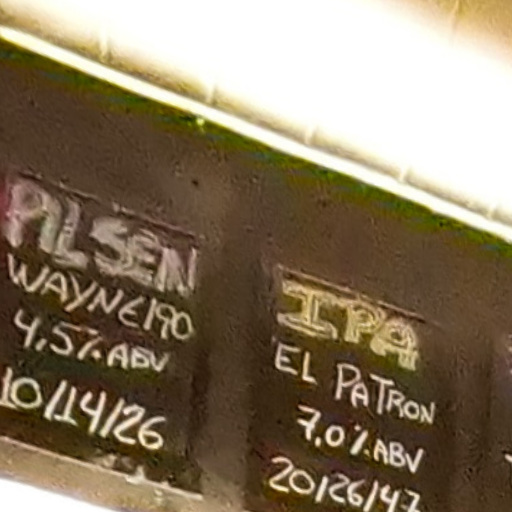 PILSEN
WAYNE190
4.5%.ABV
10/14/26
IPA
EL PATRON
7.0%.ABV
20/26/47